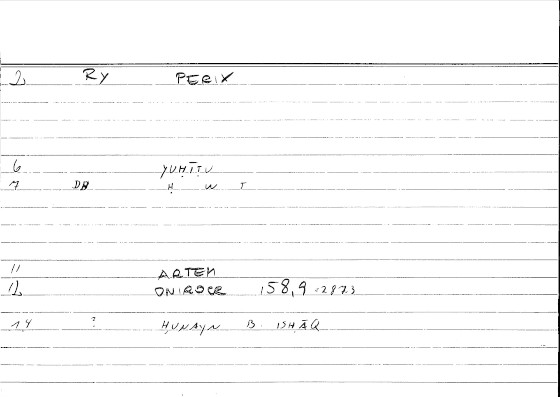 2, RY PERIX
6 YUḤĪṬU
7 DA Ḥ W T
11 ARTEM
12 ONIROCR 158,9-287.3
14 ? ḤUNAYN B. ISḤĀQ